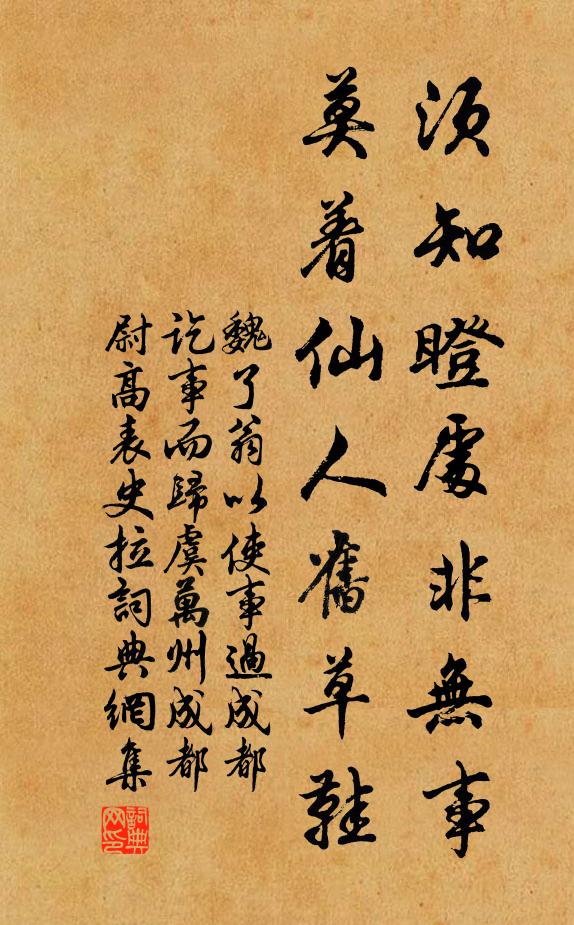 須知瞪處非無事
莫着仙人舊草鞋
魏了翁以使事過成都
訖事而歸虞萬州成都
尉高表史拉詞典網集
詞典
网印